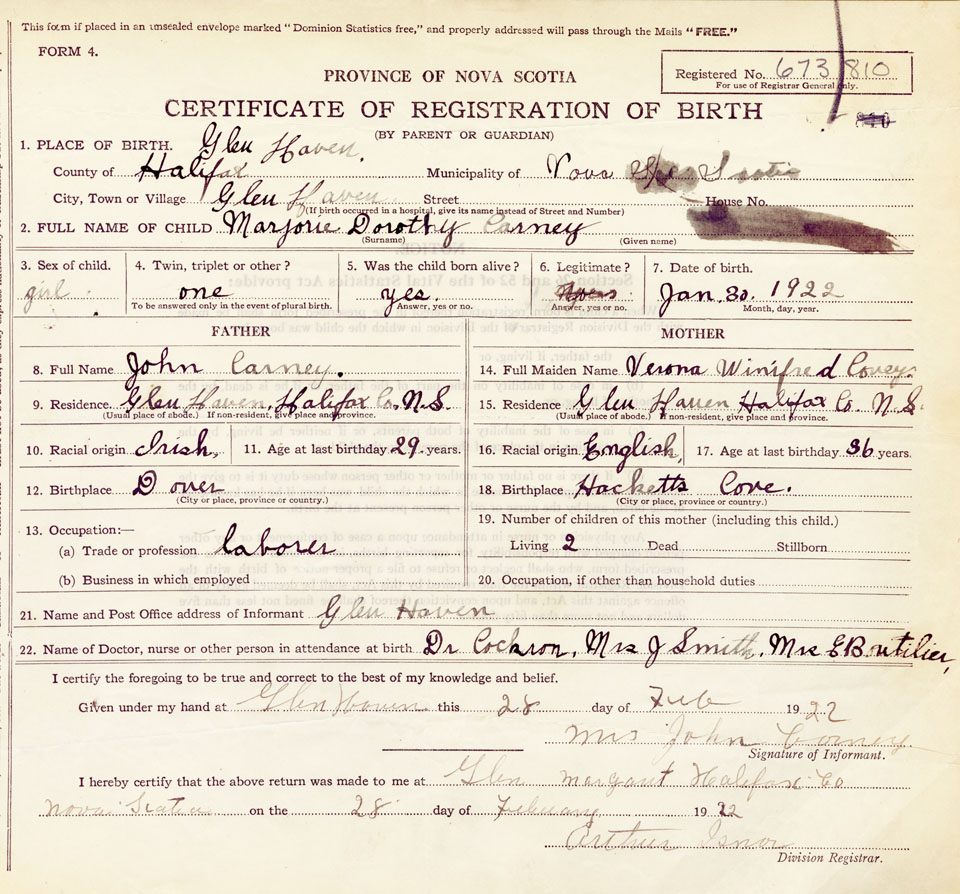 This form if placed in an unsealed envelope marked "Dominion Statistics free," and properly addressed will pass through the Mails "FREE."
FORM 4.
PROVINCE OF NOVA SCOTIA
Registered No. 673810
For use of Registrar General only.
CERTIFICATE OF REGISTRATION OF BIRTH
(BY PARENT OR GUARDIAN)
1. PLACE OF BIRTH. Glen Haven.
County of Halifax Municipality of Nova Scotia
City, Town or Village Glen Haven Street House No.
(If birth occurred in a hospital, give its name instead of Street and Number)
2. FULL NAME OF CHILD Marjorie Dorothy Carney
(Surname) (Given name)
3. Sex of child. 4. Twin, triplet or other? 5. Was the child born alive? 6. Legitimate? 7. Date of birth.
girl. one yes. Jan. 30. 1922
To be answered only in the event of plural birth. Answer, yes or no. Answer, yes or no. Month, day, year.
FATHER MOTHER
8. Full Name John Carney. 14. Full Maiden Name Verona Winifred Covey.
9. Residence Glen Haven, Halifax Co. N.S. 15. Residence Glen Haven Halifax Co. N.S.
(Usual place of abode.) If non-resident, give place and province. (Usual place of abode.) If non-resident, give place and province.
10. Racial origin Irish, 11. Age at last birthday 29 years. 16. Racial origin English, 17. Age at last birthday 36 years.
12. Birthplace Dover 18. Birthplace Hacketts Cove.
(City or place, province or country.) (City or place, province or country.)
13. Occupation:— 19. Number of children of this mother (including this child.)
(a) Trade or profession laborer Living 2 Dead Stillborn
(b) Business in which employed 20. Occupation, if other than household duties
21. Name and Post Office address of Informant Glen Haven
22. Name of Doctor, nurse or other person in attendance at birth Dr Cockron, Mrs J Smith, Mrs E Boutilier,
I certify the foregoing to be true and correct to the best of my knowledge and belief.
Given under my hand at Glen Haven this 28 day of Feb 1922
Mrs John Carney
Signature of Informant.
I hereby certify that the above return was made to me at Glen Margaret Halifax Co
Nova Scotia on the 28 day of February 1922
Arthur Isnor
Division Registrar.